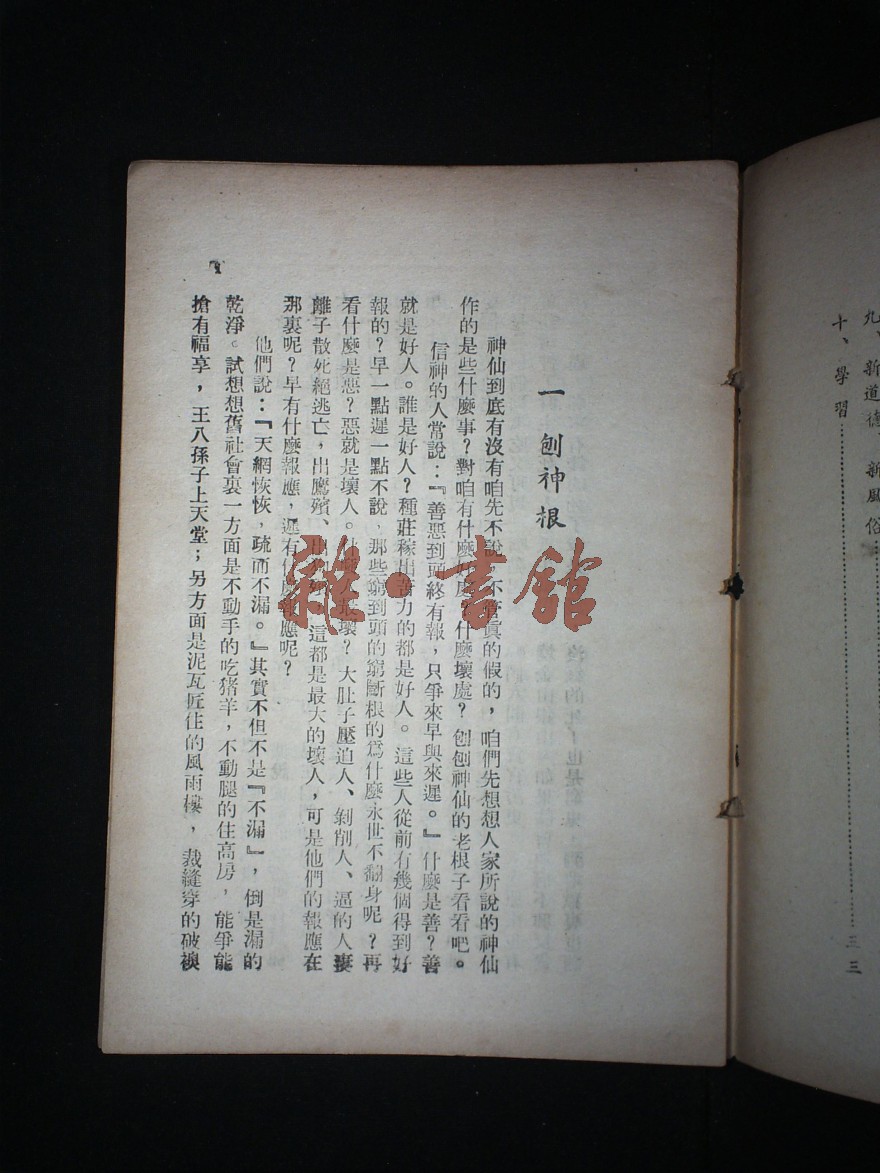 九、新道德、新風俗
十、學習……………………三三
一 刨神根
神仙到底有沒有咱先不說，不管眞的假的，咱們先想想人家所說的神仙
作的是些什麼事？對咱有什麼好處？什麼壞處？刨刨神仙的老根子看看吧。
信神的人常說：『善惡到頭終有報，只爭來早與來遲。』什麼是善？善
就是好人。誰是好人？種莊稼出苦力的都是好人。這些人從前有幾個得到好
報的？早一點遲一點不說，那些窮到頭的窮斷根的爲什麼永世不翻身呢？再
看什麼是惡？惡就是壞人。最壞？大肚子壓迫人、剝削人、逼的人妻
離子散死絕逃亡，出鷹殯、這都是最大的壞人，可是他們的報應在
那裏呢？早有什麼報應，遲有什麼報應呢？
他們說：『天網恢恢，疏而不漏。』其實不但不是『不漏』，倒是漏的
乾淨。試想想舊社會裏一方面是不動手的吃猪羊，不動腿的住高房，能爭能
搶有福享，王八孫子上天堂；另方面是泥瓦匠住的風雨樓，裁縫穿的破襖
1
雜·書館